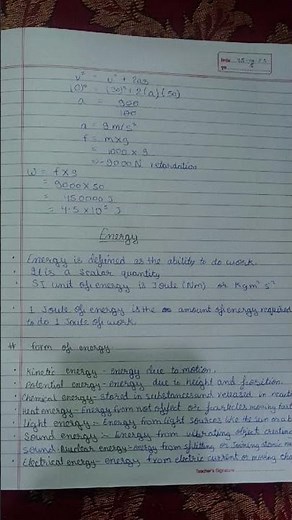 v² = u² + 2as
(0)² = (30)² + 2(a)(50)
a = 900
100
a = 9m/s²
f = mxg
= 1000 x 9
= -9000N retardation
W = f x s
= 9000 x 50
= 450000 J
= 4.5 x 10⁵ J
Energy
Energy is defined as the ability to do work.
It is a scalar quantity
SI unit of energy is Joule (Nm) or Kgm² s⁻²
1 Joule of energy is the amount of energy required
to do 1 Joule of work.
# form of energy
Kinetic energy - energy due to motion.
Potential energy - energy due to height and position.
Chemical energy - stored in substances and released in
Heat energy - Energy from hot object or particles moving fast
Light energy - Energy from light sources like the sun or a
Sound energy - Energy from vibrating object
Sound Nuclear energy - energy from splitting or joining atomic
Electrical energy - energy from electric current or moving
Teacher's Signature